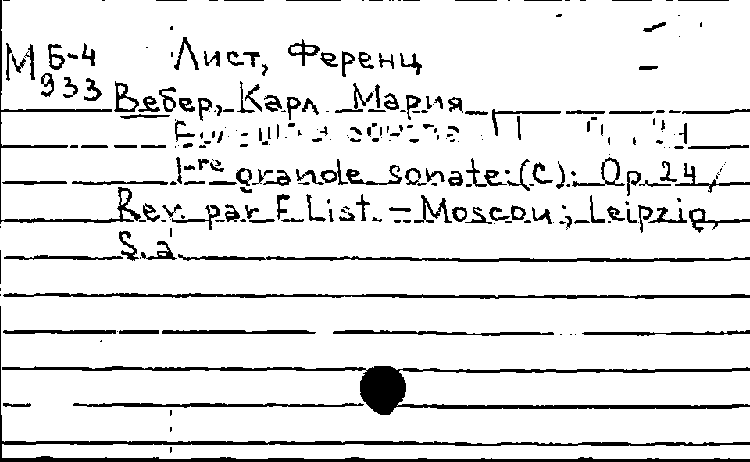 М Б-4 Лист, Ференц
933 Вебер, Карл Мария
1-re grande sonate: (C): Op. 24/
Rev. par F. List. – Moscou; Leipzig,
S. a.